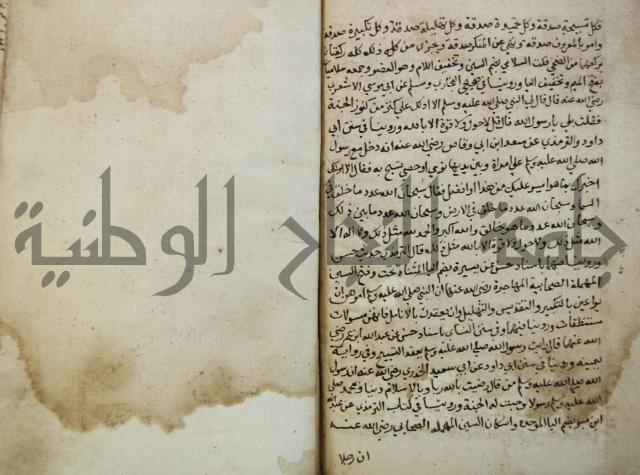 فكل تسبيحة صدقة وكل تحميدة صدقة وكل تهليلة صدقة وكل تكبيرة صدقة
وامر بالمعروف صدقة ونهي عن المنكر صدقة ويجزي من كل ذلك كله ركعتان
يركعهما من الضحي قلت السلامي بضم السين وتخفيف اللام وهو العضو وجمعه سلاميات
بفتح الميم وتخفيف اليا وروينا في صحيحي البخاري ومسلم عن ابي موسي الاشعري
رضي الله عنه قال قال لي النبي صلي الله عليه وسلم الا ادلك علي كنز من كنوز الجنة
فقلت بلي يا رسول الله قال قل لا حول ولا قوة الا بالله وروينا في سنن ابي
داود والترمذي عن سعد ابن ابي وقاص رضي الله عنه انه دخل مع رسول
الله صلي الله عليه وسلم علي امراة وبين يديها نوي او حصي تسبح به فقال الا
اخبرك بما هو ايسر عليك من هذا او افضل فقال سبحان الله عدد ما خلق في
السما وسبحان الله عدد ما خلق في الارض وسبحان الله عدد ما بين ذلك
وسبحان الله عدد ما هو خالق والله اكبر مثل ذلك ولا اله الا
الله مثل ذلك ولا حول ولا قوة الا بالله مثل ذلك قال الترمذي حديث حسن
وروينا فيهما باسناد حسن عن يسيرة بضم اليا المثناة تحت وفتح السين
المهملة الصحابية المهاجرة رضي الله عنها ان النبي صلي الله عليه وسلم امرهن ان
يراعين بالتكبير والتقديس والتهليل وان يعقدن بالانامل فانهن مسولات
مستنطقات وروينا فيهما وفي سنن النساي باسناد حسن عن عبد الله ابن عمر رضي
الله عنهما قال رايت رسول الله صلي الله عليه وسلم يعقد التسبيح وفي رواية
بيمينه وروينا في سنن ابي داود عن ابي سعيد الخدري رضي الله عنه ان رسول
الله صلي الله عليه وسلم من قال رضيت بالله ربا وبالاسلام دينا وبمحمد صلي
الله عليه وسلم رسولا وجبت له الجنة وروينا في كتاب الترمذي عن عبد الله
ابن بسر بضم البا الموحدة واسكان السين المهملة الصحابي رضي الله عنه
ان رجلا
جامعة النجاح الوطنية